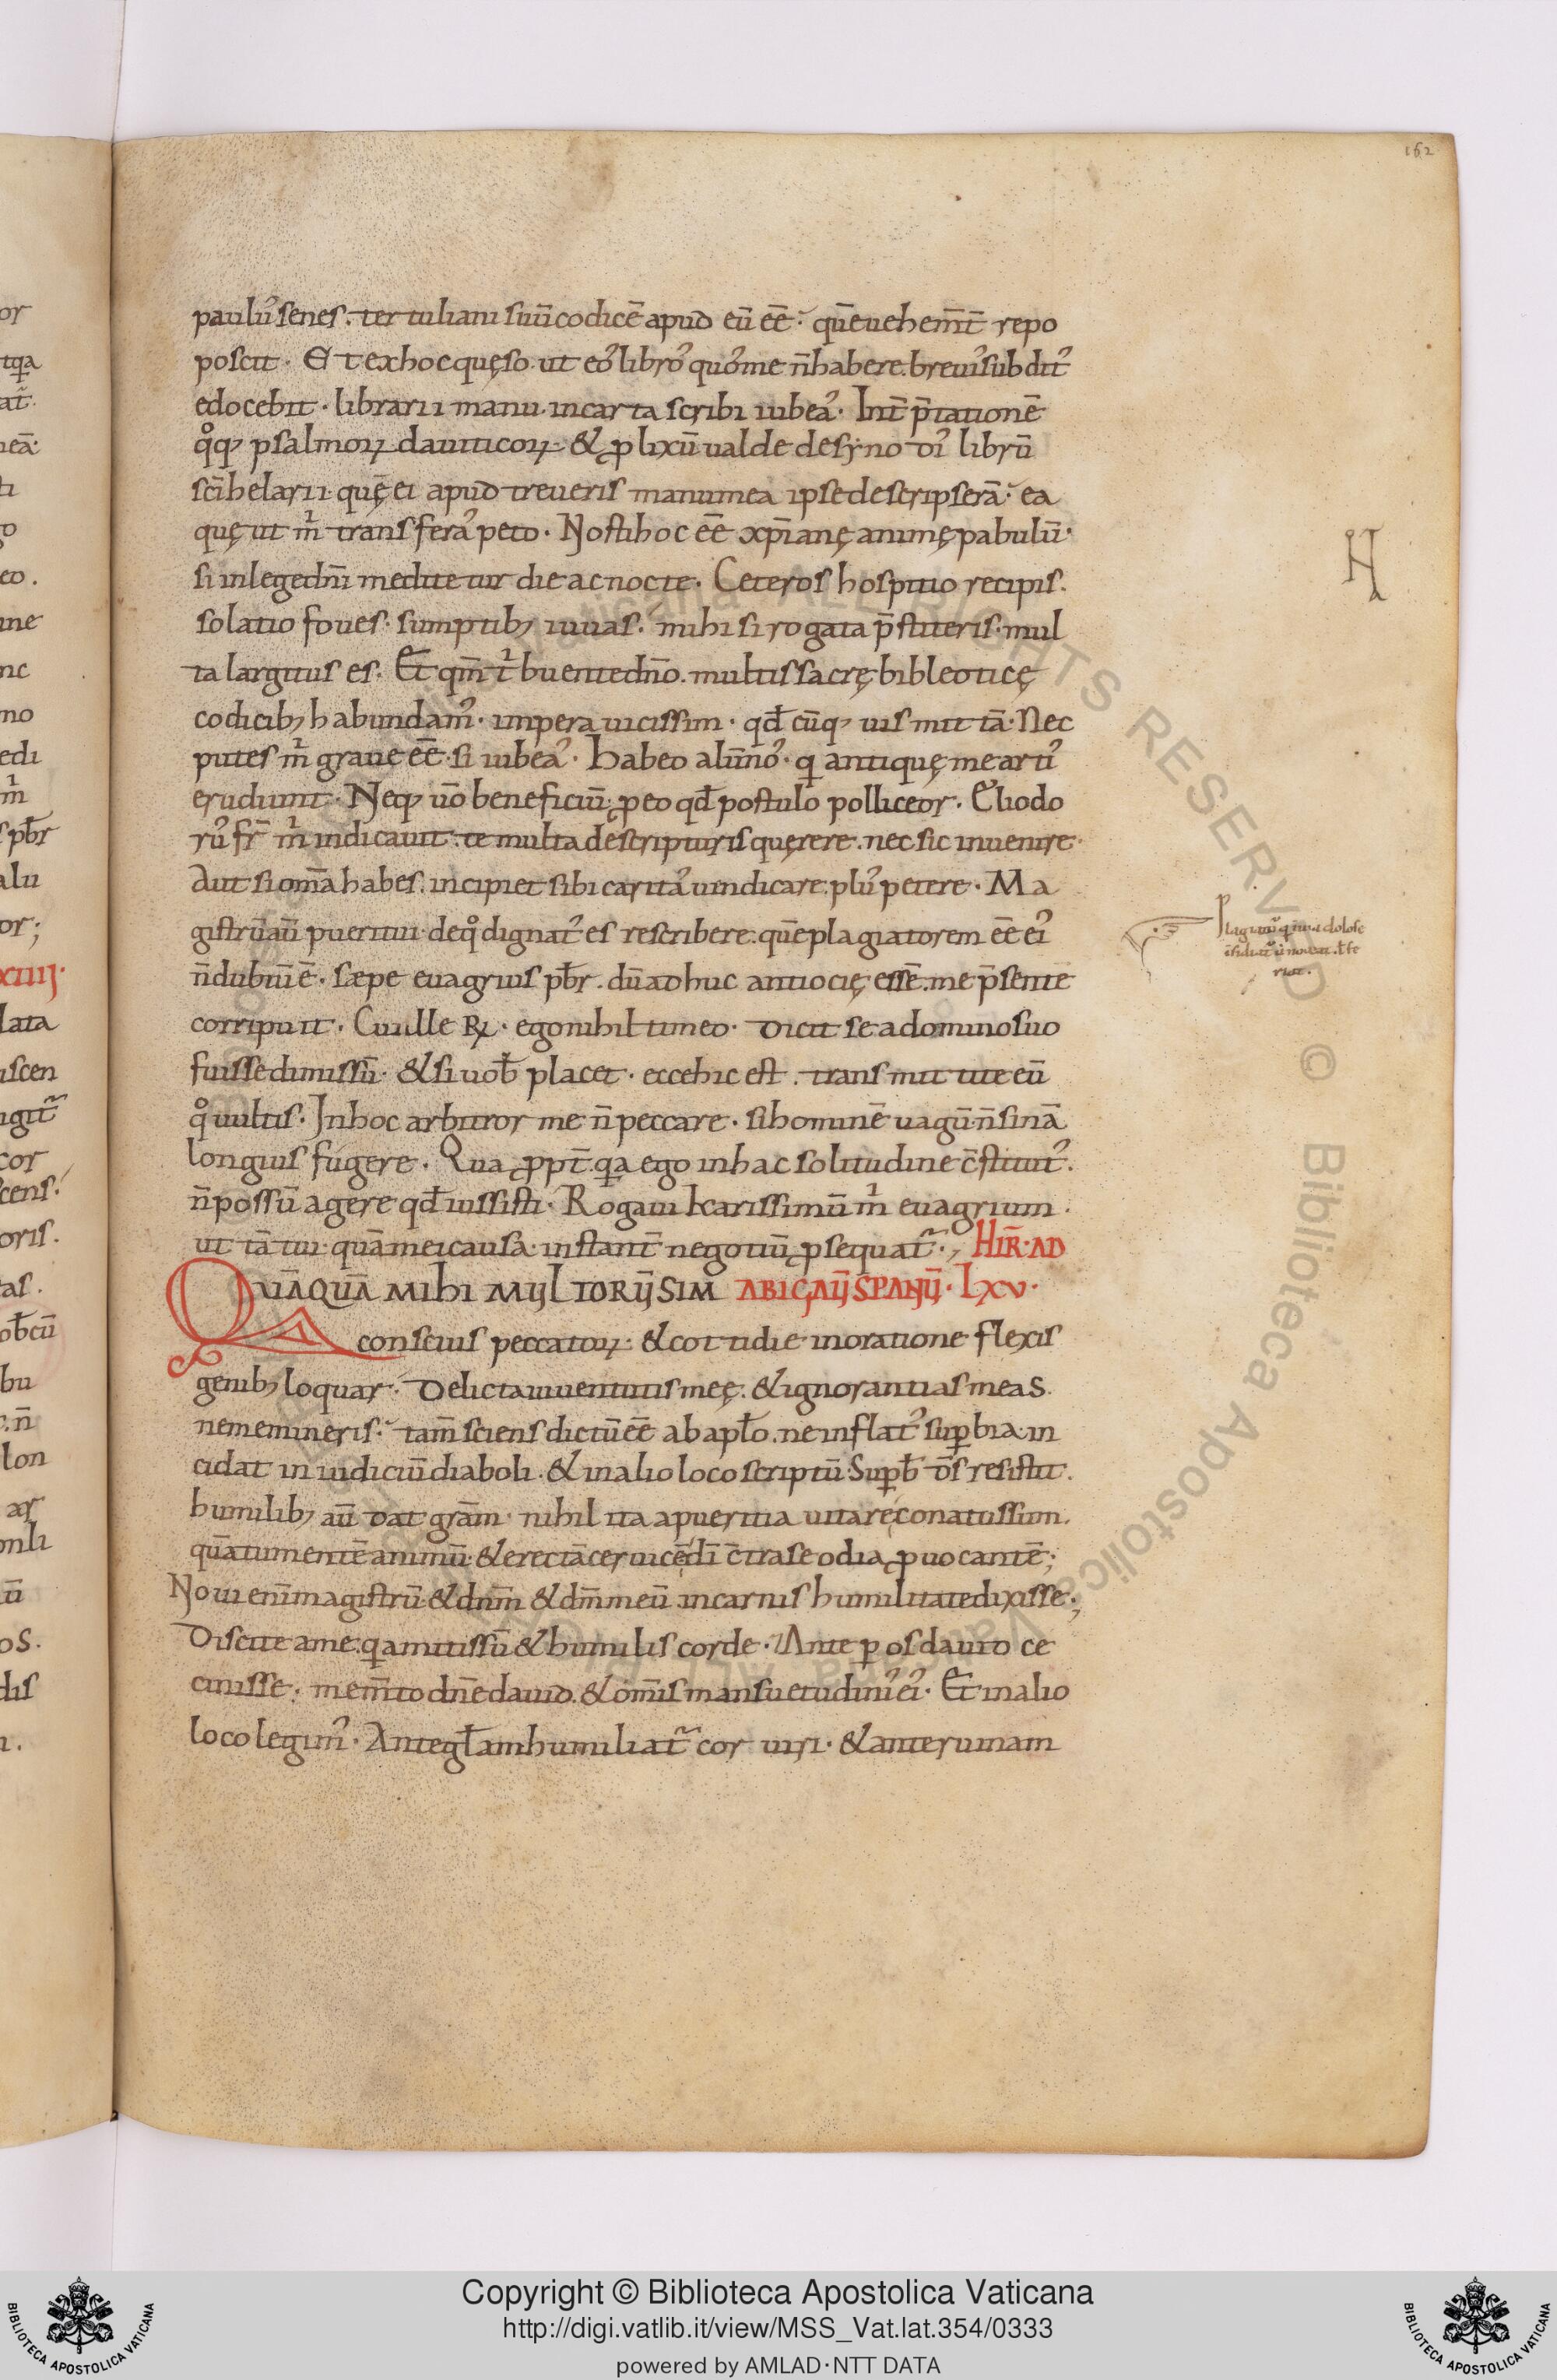 162
paulꝰ senes. tertuliani suū codicē apud eū eē. quē uehem̄t̄ repo
poscit. Et ex hoc quęso. ut eoꝰ libroꝰ quoꝰ me n̄ habere. breuiꝰ subditꝰ
edocebit. librarii manu. in carta scribi iubeaꝰ. Int̄ p̄tationē
q̊q; psalmoꝝ dauiticoꝝ. & ꝓlixū ualde de synodiꝰ librū
sc̄i helarii. quę ei apud treueris manu mea ipse descripserā. ea
quę ut m̊ transferaꝰ peto. Nosti hoc eē xp̄ianę animę pabulū.
si in lege dn̄i meditetur die ac nocte. Ceteros hospitio recipis.
solatio foues. sumptib; iuuas. mihi si rogata p̄stiteris. mul
ta largitus es. Et qm̄ tͥbuente dn̄o. multis sacrę bibleoticę
codicib; habundamꝰ. impera uicissim. qd̄ cūq; uis mittā. Nec
putes m̊ graue eē. si iubeaꝰ. Habeo alūnoꝰ. q antiquę me artiꝰ
erudiunt. Neq; uō beneficiū ꝓ eo qd̄ postulo polliceor. Eliodo
rꝰ fr̄ m̊ indicauit. te multa de scripturis quęrere. nec sic inuenire.
Aut si om̄a habes. incipiet sibi caritaꝰ uindicare. plꝰ petere. Ma
gistrū aū pueri tui. de q̊ dignatꝰ es rescribere. quē plagiatorem eē eiꝰ
n̄ dubiū ē. sæpe euagrius pƀr. dū adhuc antiocię essē. me p̄sente
corripuit. Cui ille ℞. ego nihil timeo. Dicit se a domino suo
fuisse dimissū. & si uoƀ placet. ecce hic est. transmittite eū
q̊ uultis. In hoc arbitror me n̄ peccare. si hominē uagū n̄ sinā
longius fugere. Quaꝓpt̄ qa ego in hac solitudine c̄stitutꝰ.
n̄ possū agere qd̄ iussisti. Rogaui karissimū m̊ euagrium.
ut tā tui. quā mei causa. instant̄ negotiū ꝓsequat̃.; HIR̄. AD
QUĀQUĀ MIHI MULTORŪ SIM ABIGAŪ SPANŪ. LXV.
conscius peccatoꝝ. & cottidie in oratione flexis
genib; loquar. Delicta iuuentutis meę. & ignorantias meas.
ne memineris. tam̄ sciens dictū eē ab apƚo. ne inflatꝰ suꝑbia. in
cidat in iudiciū diaboli. & in alio loco scriptū. Suꝑƀ ds̄ resistit.
humilib; aū dat grām. nihil ita a pueritia uitare conatus sum.
quā tumentē animū. & erectā ceruicē. dī c̄tra se odia ꝓuocantē;
Noui eni̅ magistrū & dnm̄ & dm̄ meū. in carnis humilitate dixisse.;
Discite a me. qa mitis sū & humilis corde. Ante ꝑ os dauid ce
cinisse. mem̄to dn̄e dauid. & om̄is mansuetudiniꝰ eiꝰ. Et in alio
loco legimꝰ. Ante gƚam humiliat̃ cor uiri. & ante ruinam
Copyright © Biblioteca Apostolica Vaticana
http://digi.vatlib.it/view/MSS_Vat.lat.354/0333
powered by AMLAD·NTT DATA
BIBLIOTECA APOSTOLICA VATICANA
BIBLIOTECA APOSTOLICA VATICANA